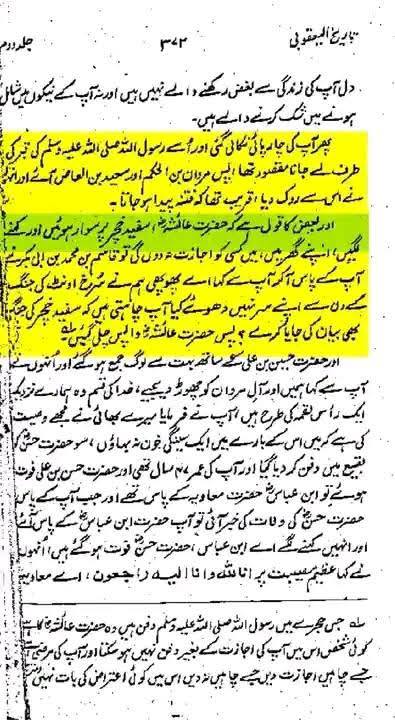 تاریخ الیعقوبی ۳۷۲ جلد دوم
دل آپ کی زندگی سے بغض رکھنے والے نہیں ہیں اور نہ آپ کے نیکوں میں شامل
ہونے میں شک کرنے والے ہیں۔
پھر آپ کی چارپائی نکالی گئی اور اُسے رسول اللہ صلی اللہ علیہ وسلم کی قبر کی
طرف لے جانا مقصود تھا، پس مروان بن الحکم اور سعید بن العاص آئے اور انہوں
نے اس سے روک دیا، قریب تھا کہ فتنہ پیدا ہو جاتا۔
اور بعض کا قول ہے کہ حضرت عائشہؓ، سفید خچر پر سوار ہوئیں اور کہنے
لگیں، اپنے گھر میں، میں کسی کو اجازت نہ دوں گی تو قاسم بن محمد بن ابی بکر نے
آپ کے پاس آ کر آپ سے کہا اے پھوپھی ہم نے سرخ اونٹ کی جنگ
کے دن سے اپنے سر نہیں دھوئے کیا آپ چاہتی ہیں کہ سفید خچر کی جنگ
بھی بیان کی جایا کرے؟ پس حضرت عائشہؓ واپس چلی گئیں
اور حضرت حسین بن علی کے ساتھ بہت سے لوگ جمع ہو گئے اور انہوں نے
آپ سے کہا ہمیں اور آلِ مروان کو چھوڑ دیجیے، خدا کی قسم وہ ہمارے نزدیک
ایک رأس لقمہ کی طرح ہیں، آپ نے فرمایا میرے بھائی نے مجھے وصیت
کی ہے کہ میں اس کے بارے میں ایک سینگی خون نہ بہاؤں، سو حضرت حسنؓ کو
بقیع میں دفن کر دیا گیا اور آپ کی عمر ۴۷ سال تھی اور حضرت حسن بن علی فوت
ہوئے تو ابن عباسؓ حضرت معاویہ کے پاس تھے اور جب آپ کے پاس
حضرت حسنؓ کی وفات کی خبر آئی تو آپ حضرت ابن عباسؓ کے پاس آئے
اور انہیں کہنے لگے اے ابن عباس، حضرت حسنؓ فوت ہو گئے ہیں، انہوں
نے کہا عظیم مصیبت پر انا للہ وانا الیہ راجعون، اے معاویہ
لہ جس حجرے میں رسول اللہ صلی اللہ علیہ وسلم دفن ہیں وہ حضرت عائشہؓ کا ہے
کوئی شخص اس میں آپ کی اجازت کے بغیر دفن نہیں ہو سکتا اور آپ کی مرضی
جسے چاہیں اجازت دیں جسے چاہیں نہ دیں اس میں کوئی اعتراض کی بات نہیں